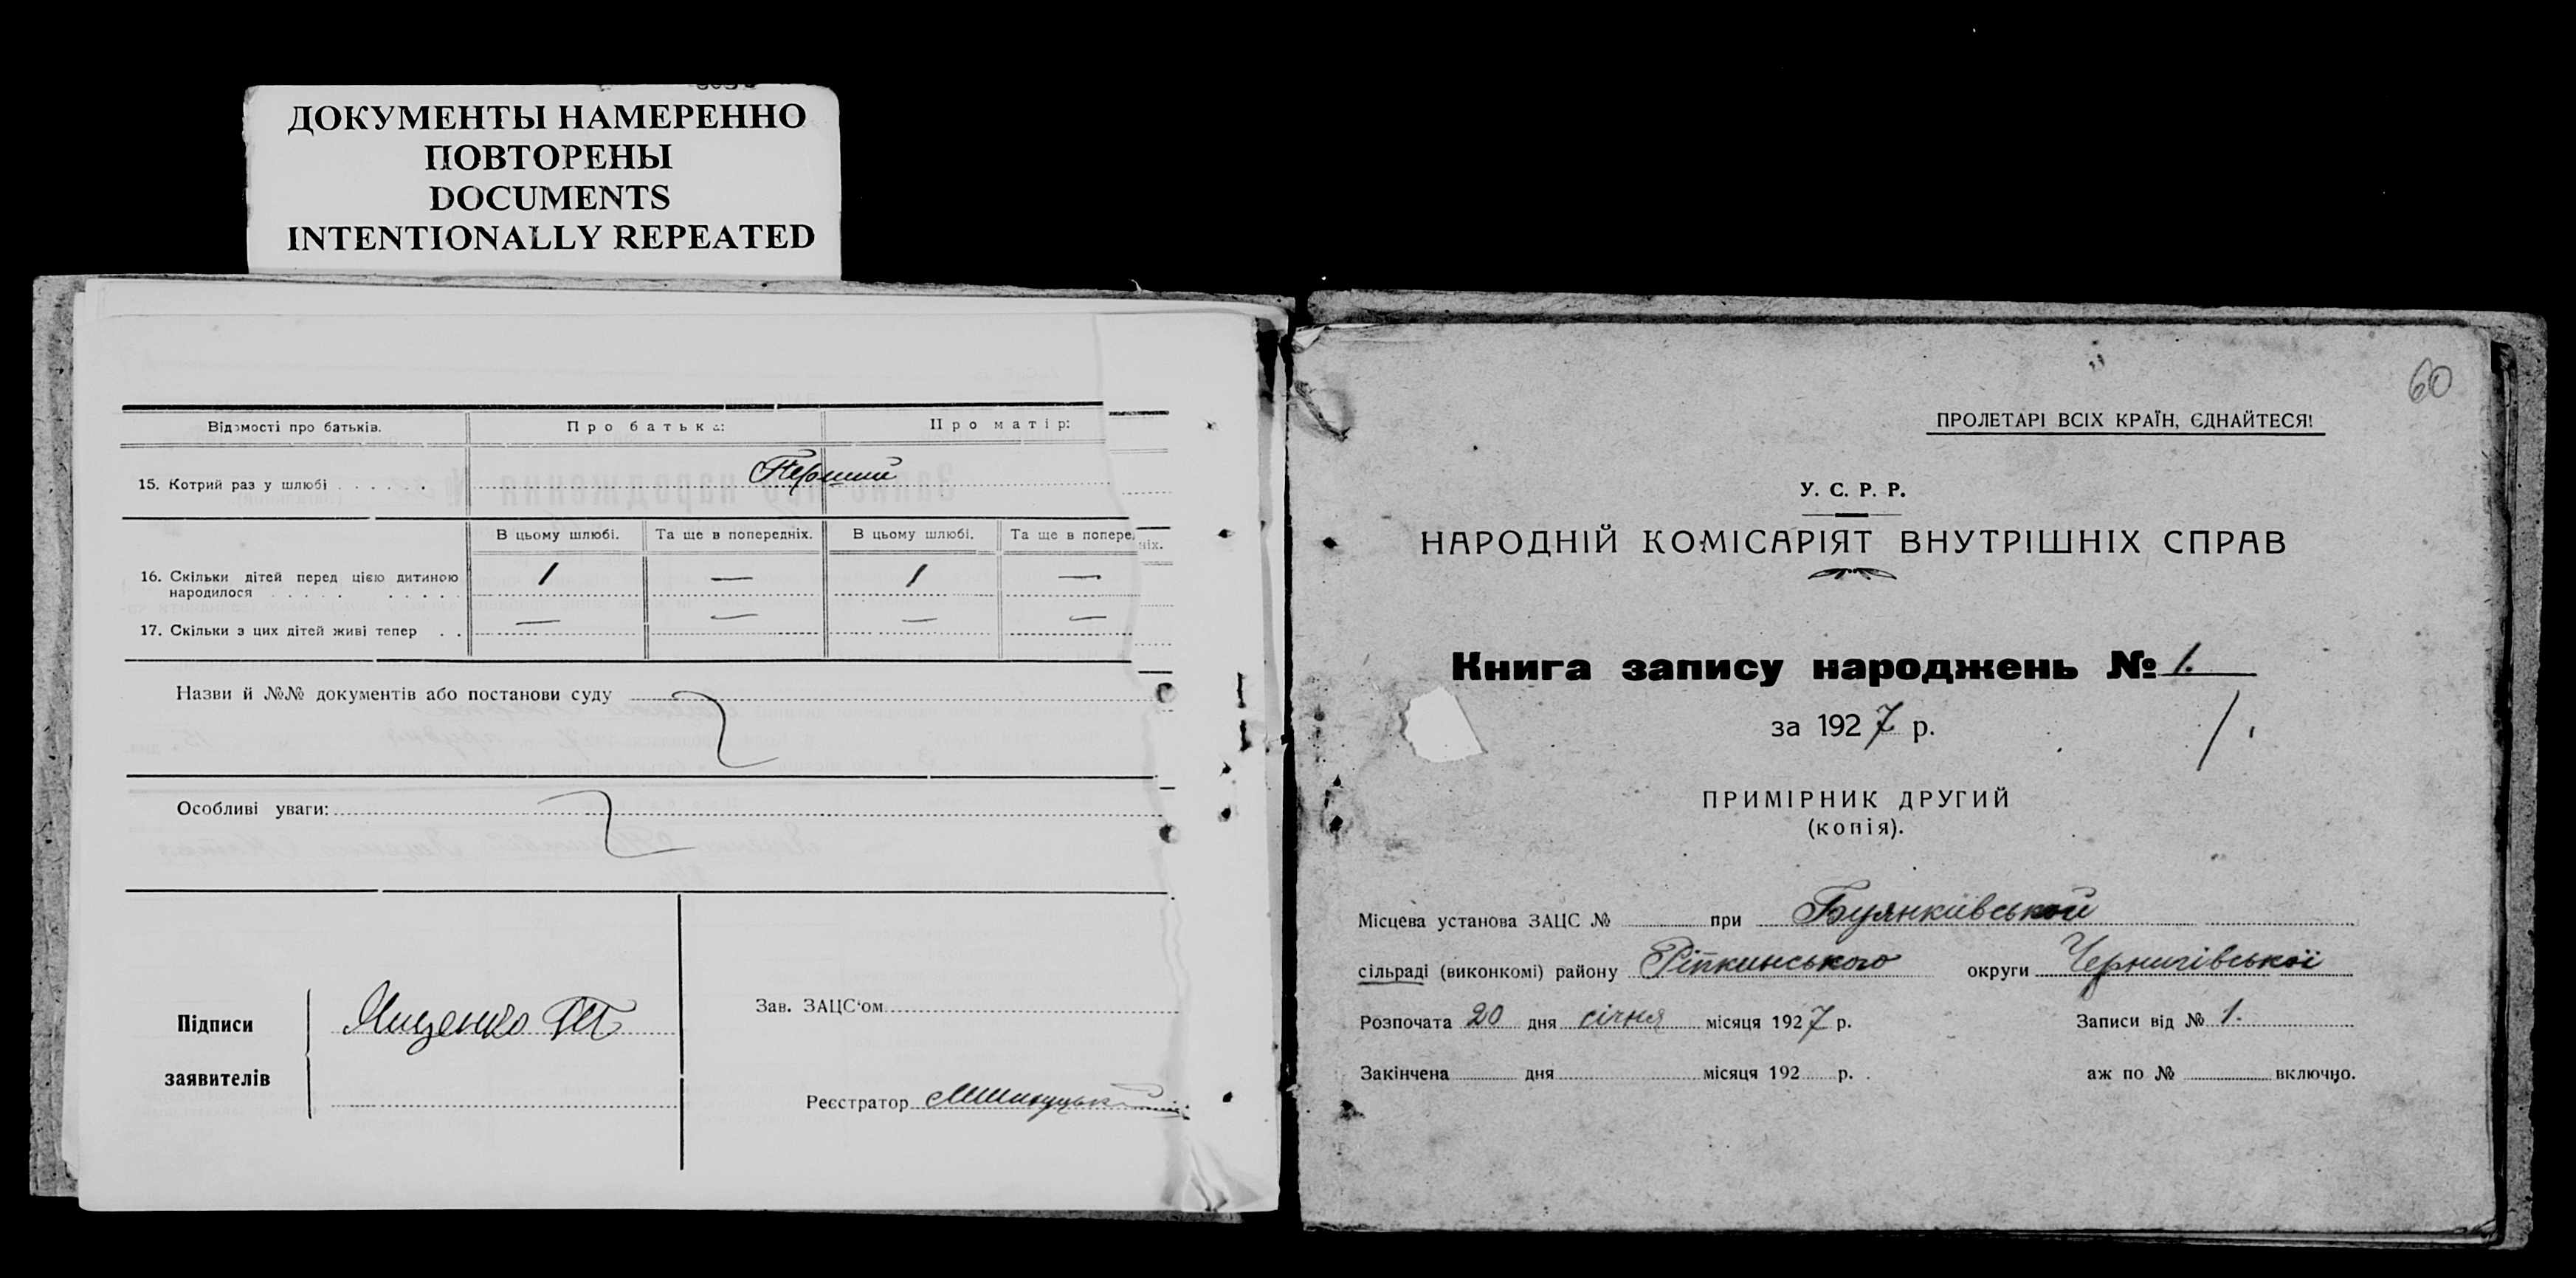 ДОКУМЕНТЫ НАМЕРЕННО
ПОВТОРЕНЫ
DOCUMENTS
INTENTIONALLY REPEATED
Відомості про батьків.
Про батька:
Про матір:
15. Котрий раз у шлюбі . . . . . . Перший
В цьому шлюбі. Та ще в попередніх. В цьому шлюбі. Та ще в попере
ніх.
16. Скільки дітей перед цією дитиною
народилося . . . . . . . . . . 1 — 1 —
17. Скільки з цих дітей живі тепер . . — — — —
Назви й №№ документів або постанови суду
Особливі уваги:
Підписи
заявителів
Ященко
Зав. ЗАЦС'ом
Реєстратор
60
ПРОЛЕТАРІ ВСІХ КРАЇН, ЄДНАЙТЕСЯ!
У. С. Р. Р.
НАРОДНІЙ КОМІСАРІЯТ ВНУТРІШНІХ СПРАВ
Книга запису народжень № 1.
за 1927 р.
1.
ПРИМІРНИК ДРУГИЙ
(копія).
Місцева установа ЗАЦС № при Буянківської
сільраді (виконкомі) району Ріпкинського округи Чернигівської
Розпочата 20 дня січня місяця 1927 р. Записи від № 1.
Закінчена дня місяця 192 р. аж по № включно.